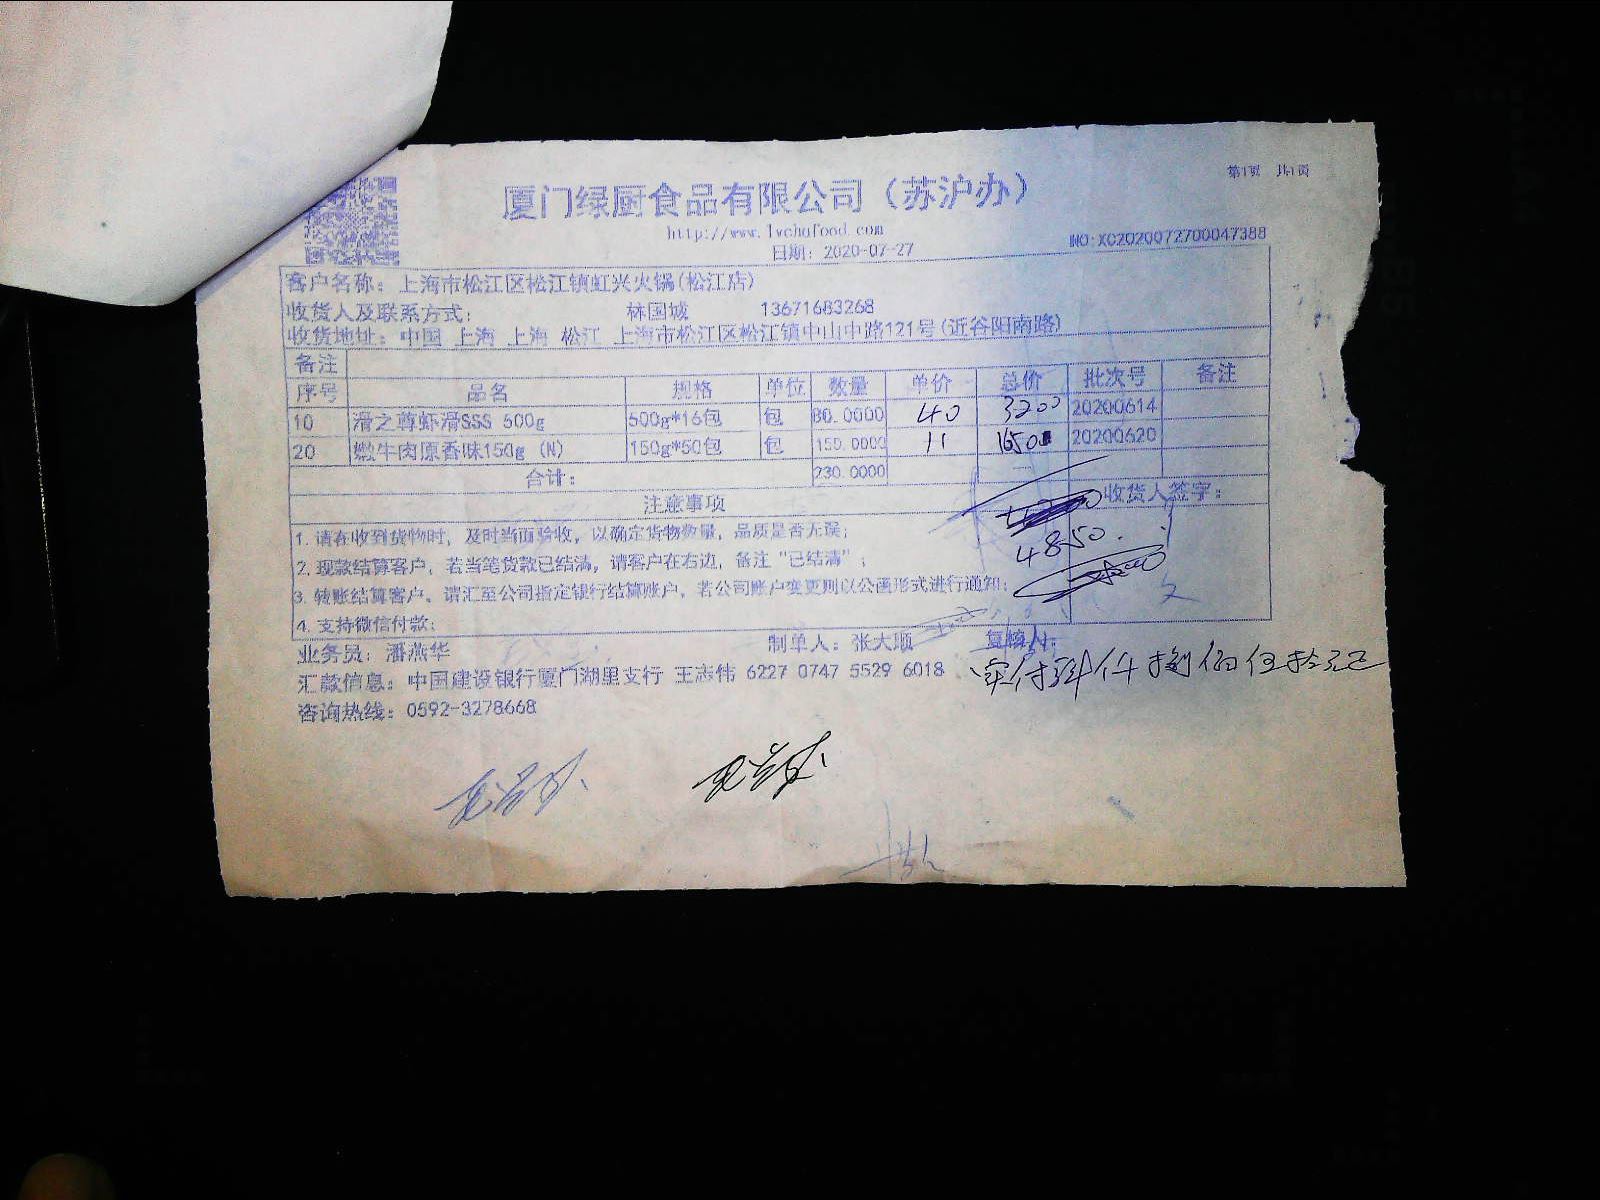 第1页 共1页
厦门绿厨食品有限公司（苏沪办）
http://www.lvchufood.com
日期：2020-07-27
NO:XC2020072700047388
客户名称：上海市松江区松江镇虹兴火锅(松江店)
收货人及联系方式： 林国城 13671683268
收货地址：中国 上海 上海 松江 上海市松江区松江镇中山中路121号(近谷阳南路)
备注
序号 品名 规格 单位 数量 单价 总价 批次号 备注
10 滑之尊虾滑SSS 500g 500g*16包 包 80.0000 40 3200 20200614
20 嫩牛肉原香味150g (N) 150g*50包 包 150.0000 11 1650 20200620
合计： 230.0000
注意事项 收货人签字：
1. 请在收到货物时，及时当面验收，以确定货物数量，品质是否无误；
2. 现款结算客户，若当笔货款已结清，请客户在右边，备注“已结清”；
4850.
3. 转账结算客户。请汇至公司指定银行结算账户，若公司账户变更则以公函形式进行通知；
4. 支持微信付款；
业务员：潘燕华 制单人：张大顺 复核人：
汇款信息：中国建设银行厦门湖里支行 王志伟 6227 0747 5529 6018
实付肆仟捌佰伍拾元正
咨询热线：0592-3278668